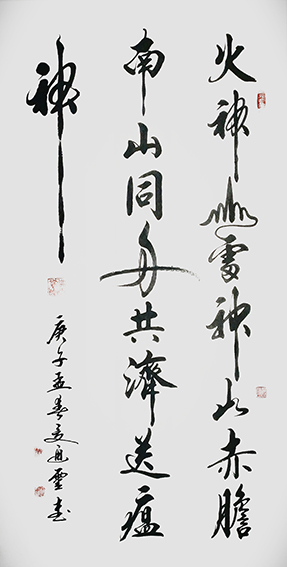 火神山雷神山赤膽
南山同舟共濟送瘟
神
庚子孟春